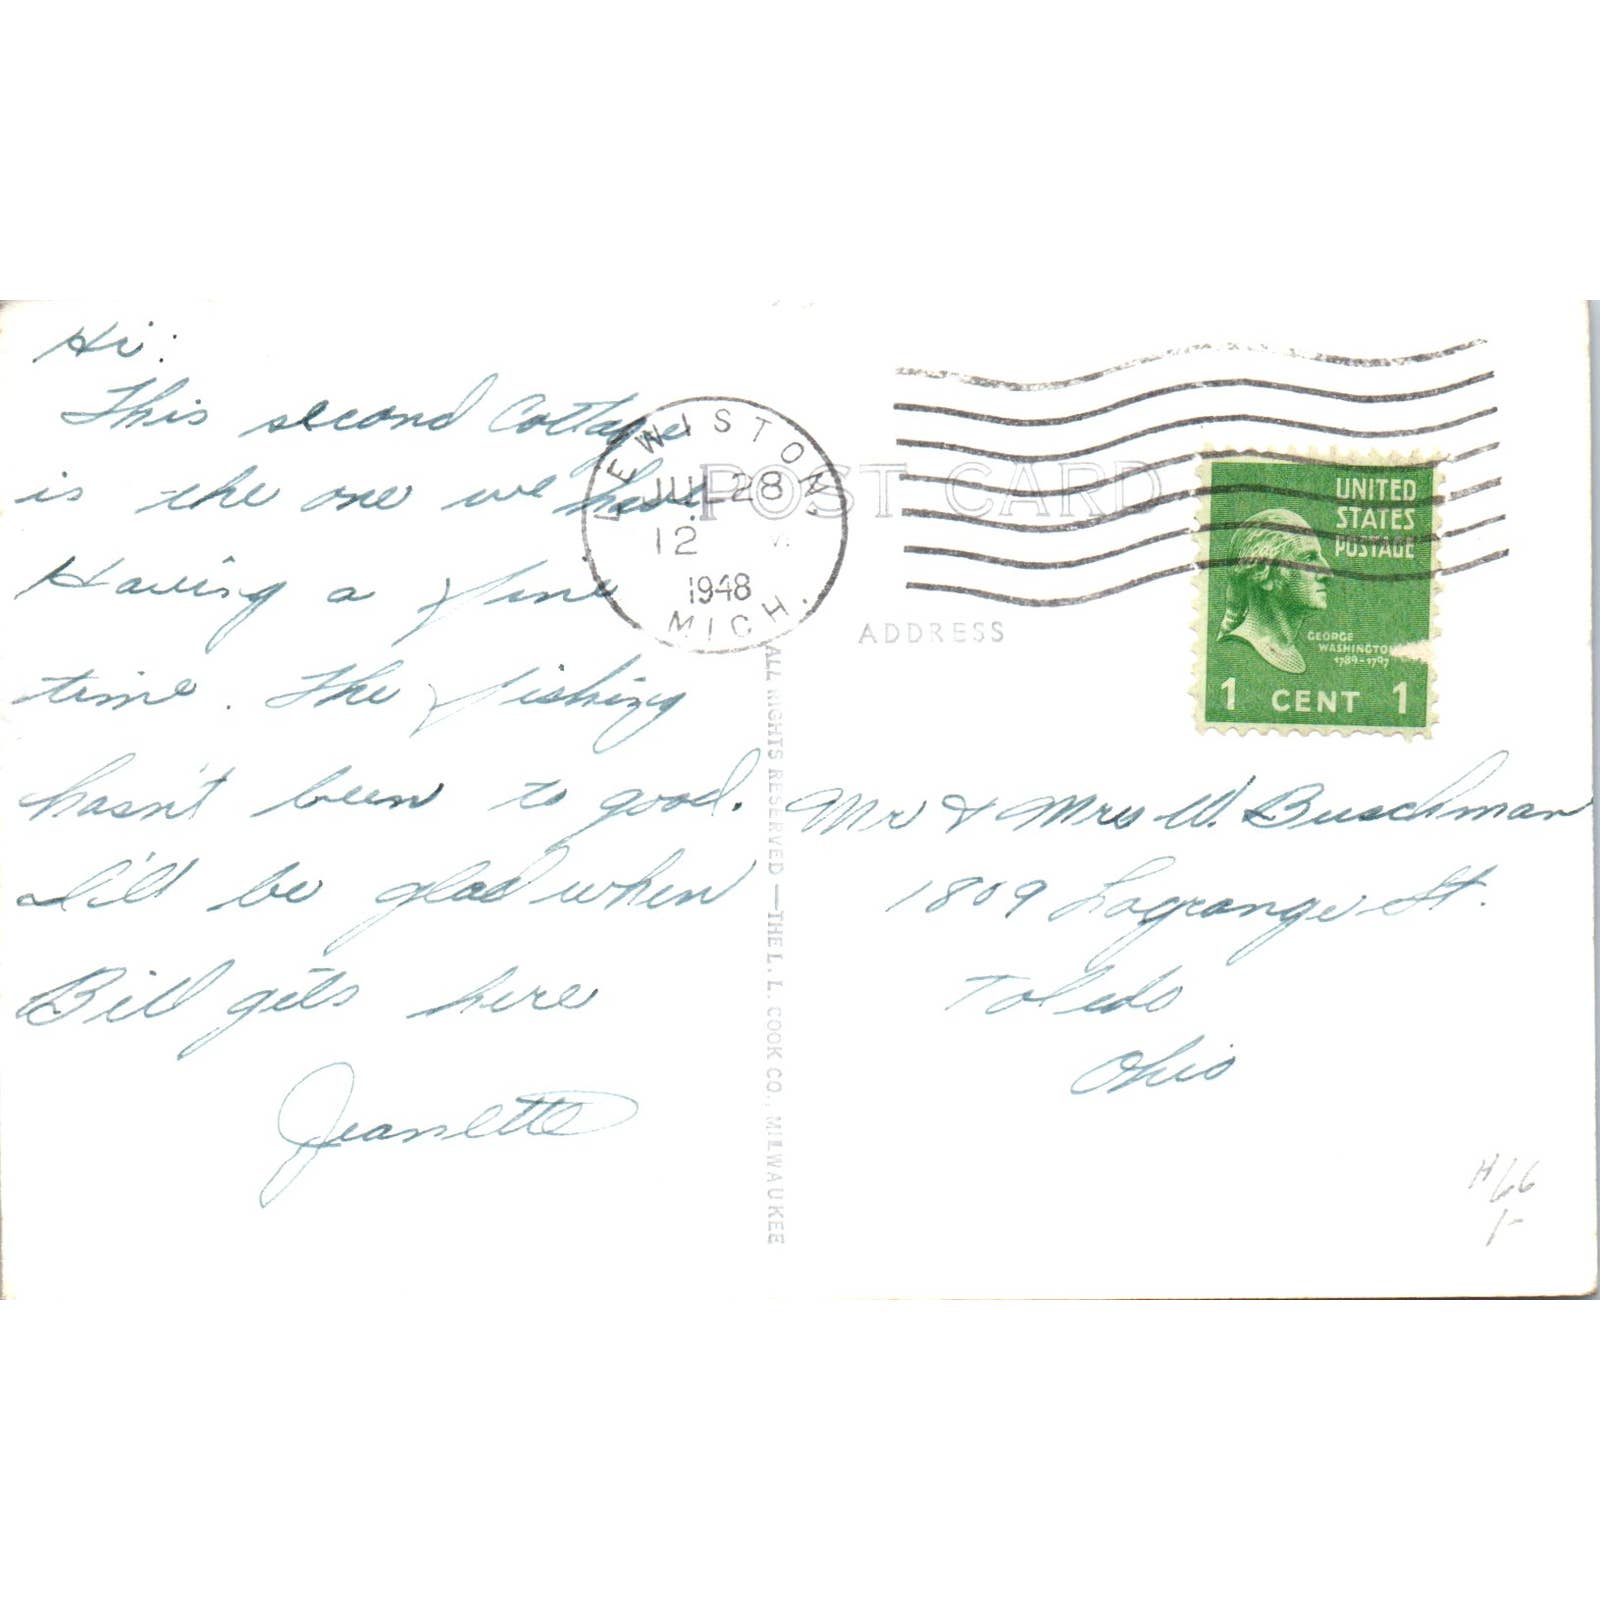 Hi:
This second Cottage
is the one we have
Having a fine
time. The fishing
hasn't been to good.
I'll be glad when
Bill gets here
Jeanette
LEWISTON,
JUL 28
12
1948
MICH.
POST CARD
ADDRESS
UNITED
STATES
POSTAGE
GEORGE
WASHINGTON
1789-1797
1 CENT 1
Mr & Mrs W. Buschman
1809 Lagrange St.
Toledo
Ohio
ALL RIGHTS RESERVED—THE L. L. COOK CO., MILWAUKEE
H/66
1-